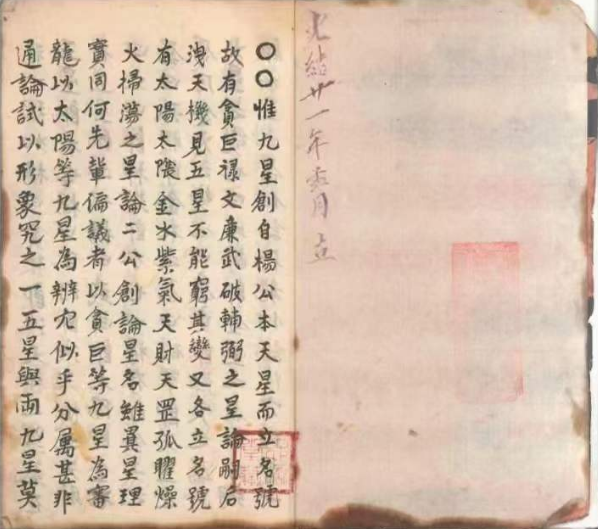 光緒廿一年月立
〇〇惟九星創自楊公本天星而立名號
故有貪巨禄文廉武破輔弼之星論嗣后
洩天機見五星不能窮其變又各立名號
有太陽太陰金水紫氣天財天罡孤曜燥
火掃蕩之星論二公創論星名雖異星理
實同何先輩偏議者以貪巨等九星為審
龍以太陽等九星為辨穴似乎分属甚非
通論試以形象究之一五星與両九星莫